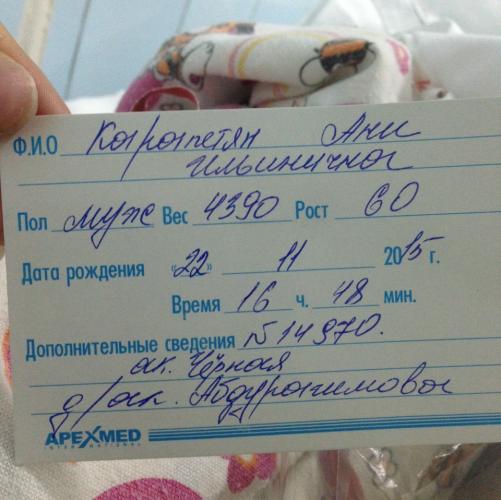 Ф.И.О Карапетян Ани
Ильинична
Пол муж Вес 4390 Рост 60
Дата рождения "22" 11 2015 г.
Время 16 ч. 48 мин.
Дополнительные сведения №14970.
ак. Чёрная
д/ак. Абдурагимова
APEXMED
INTERNATIONAL